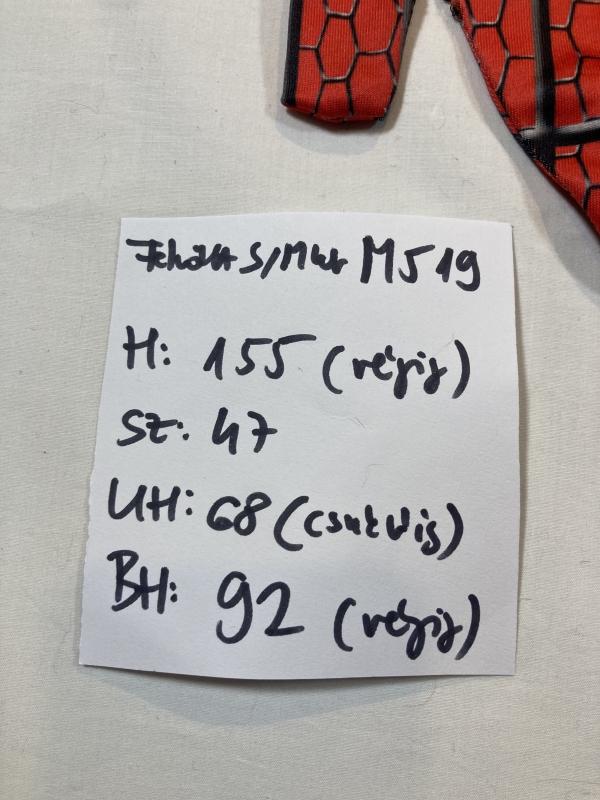 Felnőtt S/M-es M519
H: 155 (végig)
SZ: 47
UH: 68 (csuklóig)
BH: 92 (végig)